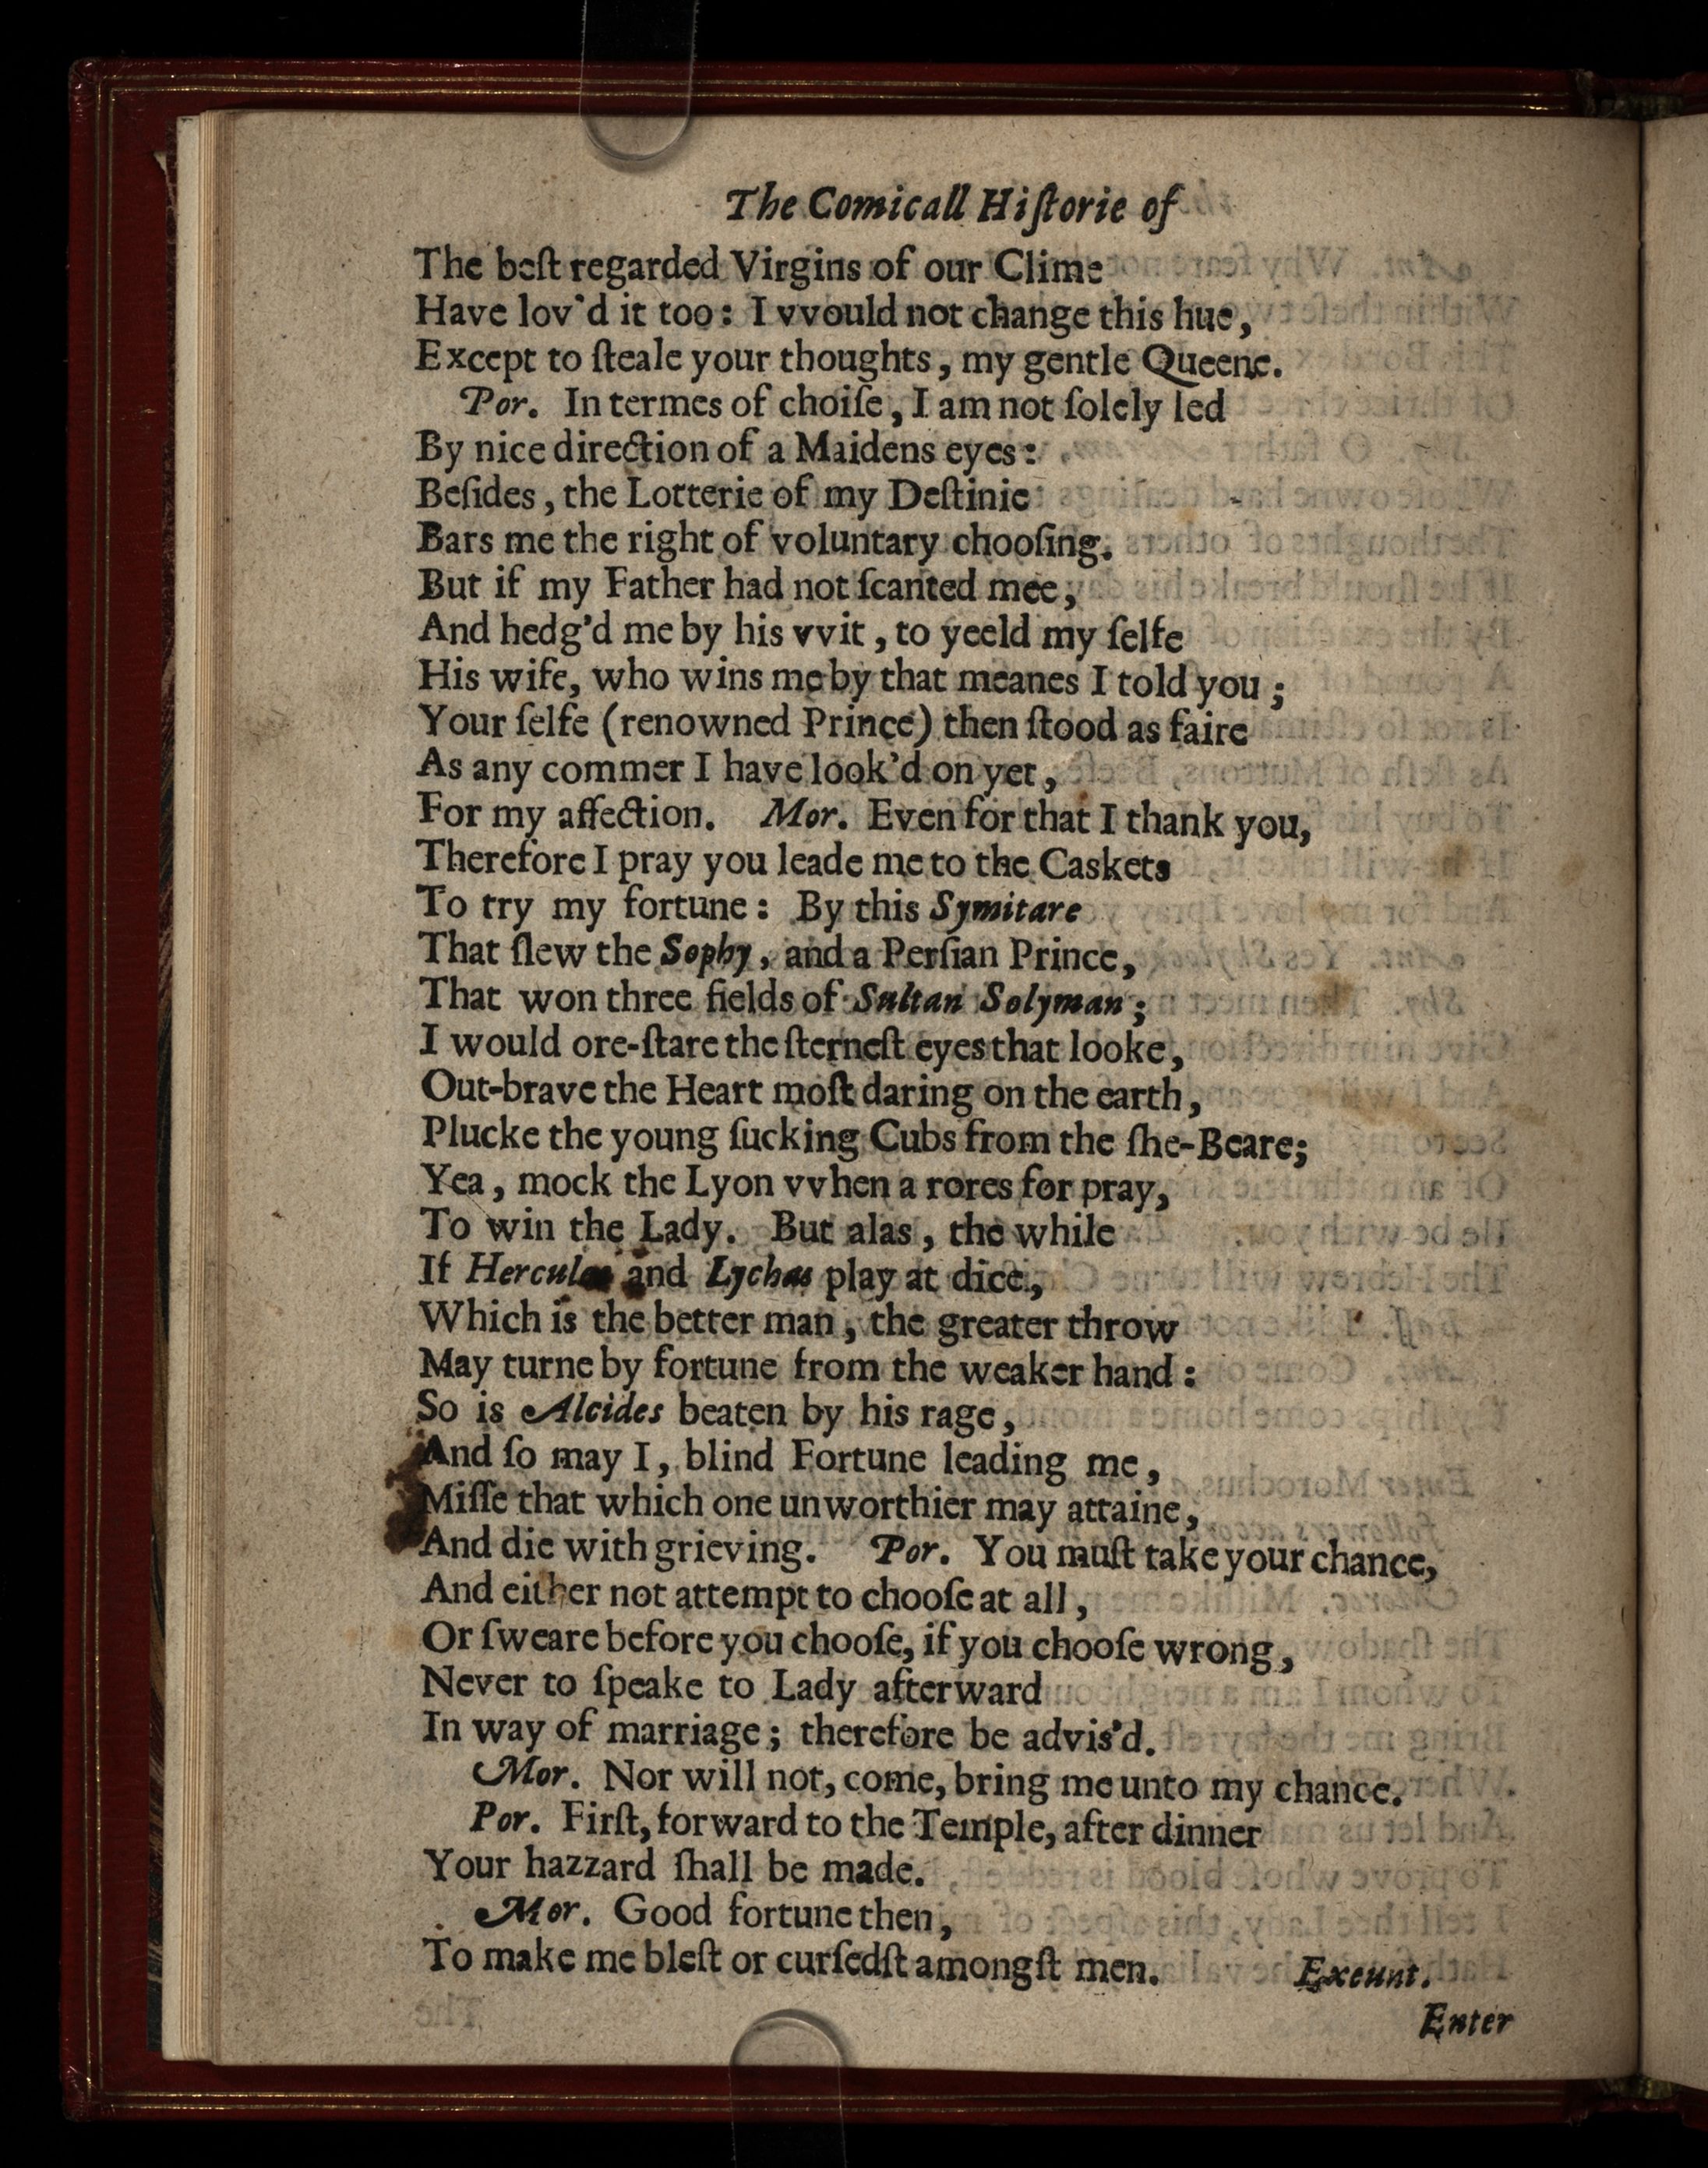 The Comicall Hiſtorie of
The beſt regarded Virgins of our Clime
Have lov'd it too: I vvould not change this hue,
Except to ſteale your thoughts, my gentle Queene.
Por. In termes of choiſe, I am not ſolely led
By nice direction of a Maidens eyes:
Beſides, the Lotterie of my Deſtinie
Bars me the right of voluntary chooſing.
But if my Father had not ſcanted mee,
And hedg'd me by his vvit, to yeeld my ſelfe
His wife, who wins me by that meanes I told you;
Your ſelfe (renowned Prince) then ſtood as faire
As any commer I have look'd on yet,
For my affection. Mor. Even for that I thank you,
Therefore I pray you leade me to the Caskets
To try my fortune: By this Symitare
That ſlew the Sophy, and a Perſian Prince,
That won three fields of Sultan Solyman;
I would ore-ſtare the ſterneſt eyes that looke,
Out-brave the Heart moſt daring on the earth,
Plucke the young ſucking Cubs from the ſhe-Beare;
Yea, mock the Lyon vvhen a rores for pray,
To win the Lady. But alas, the while
If Hercules and Lychas play at dice,
Which is the better man, the greater throw
May turne by fortune from the weaker hand:
So is Alcides beaten by his rage,
And ſo may I, blind Fortune leading me,
Miſſe that which one unworthier may attaine,
And die with grieving. Por. You muſt take your chance,
And either not attempt to chooſe at all,
Or ſweare before you chooſe, if you chooſe wrong,
Never to ſpeake to Lady afterward
In way of marriage; therefore be advis'd.
Mor. Nor will not, come, bring me unto my chance.
Por. Firſt, forward to the Temple, after dinner
Your hazzard ſhall be made.
Mor. Good fortune then,
To make me bleſt or curſedſt amongſt men. Exeunt.
Enter